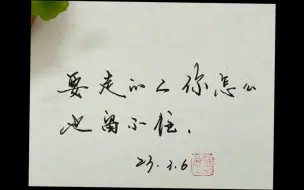 要走的人你怎么
也留不住.
23.3.6